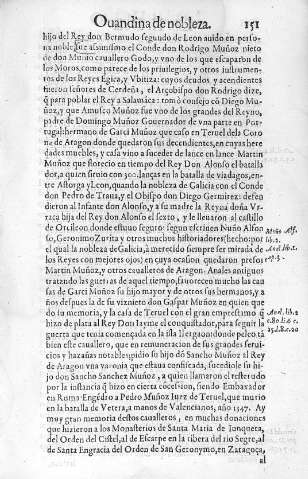 Ouandina de nobleza. 151
hijo del Rey don Bermudo segundo de Leon auido en perso-
na noble, fue assimismo el Conde don Rodrigo Muñoz nieto
de don Munio cauallero Godo, y vno de los que escaparon de
los Moros, como parece de los priuilegios, y otros instrumen-
tos de los Reyes Egica, y Vbitiza: cuyos deudos, y acendientes
fueron señores de Cerdeña, el Arçobispo don Rodrigo dize,
q̃ para poblar el Rey a Salamãca: tomò consejo cõ Diego Mu-
ñoz, y que Amusco Muñoz fue vno de los grandes del Reyno,
padre de Domingo Muñoz Gouernador de vna parte en Por-
tugal: hermano de Garci Muñoz que caso en Teruel de la Coro
na de Aragon donde quedaron sus decendientes, en cuyas here
dades muebles, y casa vino a suceder de lance en lance Martin
Muñoz que florecio en tiempo del Rey Don Alonso el batalla
dor, a quien siruio con 300. lanças en la batalla de viadagos, en-
tre Astorga y Leon, quando la nobleza de Galicia con el Conde
don Pedro de Traua, y el Obispo don Diego Germirez: defen
dieron al Infante don Alonso, y a su madre la Reyna doña Vr-
raca hija del Rey don Alonso el sexto, y le llenaron al castillo
de Orsileon donde estuuo seguro: segun escriuen Nuño Alfon
so, Geronimo Zurita, y otros muchos historiadores (hecho) por
el qual la nobleza de Galicia, à merecido siempre ser mirada de
los Reyes con mejores ojos) en cuya ocasion quedaron presos
Martin Muñoz, y otros caualleros de Aragon. Anales antiguos
tratando las guerras de aquel tiempo, fauorecen mucho las cau
sas de Garci Muñoz su hijo mayor y de otros sus hermanos, y a
ños despues la de su viznieto don Gaspar Muñoz en quien que
do su memoria, y la casa de Teruel con el gran emprestimo q̃
hizo de plata al Rey Don Iayme el conquistador, para seguir la
guerra que tenia començada en la isla                 donde peleo tã
bien este cauallero, que en remuneracion de sus grandes serui-
cios y hazañas notables pidio su hijo dõ Sancho Muñoz al Rey
de Aragon vna varonia que estaua confiscada, sucediole su hi-
jo don Sancho Muñoz, a quien llamaron el resterudo
por la instancia q̃ hizo en cierta ocession, siendo Embaxador
en Roma. Engẽdro a Pedro Muñoz Iurz de Teruel, que murio
en la batalla de Vetera, a manos de Valencianos, año, 1347. Ay
muy gran memoria destos caualleros, en muchas donaciones
que luzieron a los Monasterios de Santa Maria de Ionqueta,
del Orden del Cistel, al de Escarpe en la ribera del rio Segre, al
de Santa Engracia del Orden de San Geronymo, en Zaragoça,
al
Nuño Alf.
lib. 2.
Anal. lib. 2.
Anal. lib. 2